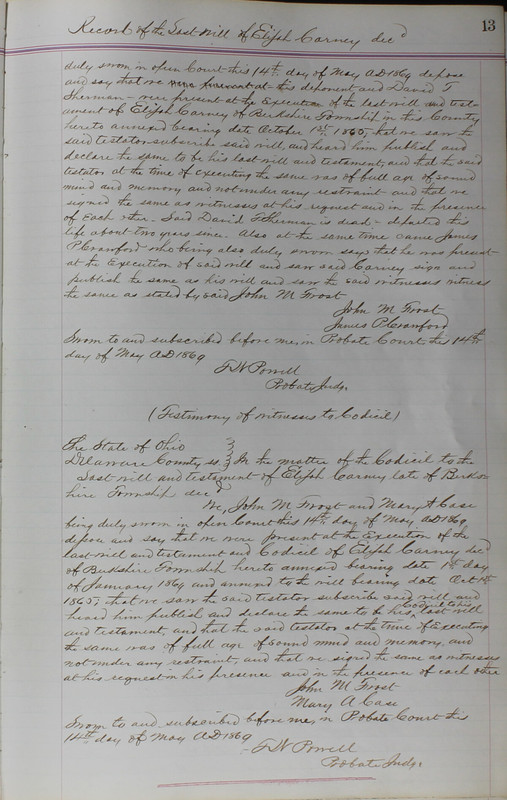 13
Record of the Last Will of Elijah Carney decd
duly sworn in open Court this 14th day of May AD 1869 depose
and say that we were present at the deponent and David T
Sherman were present at the Execution of the last will and test-
ament of Elijah Carney of Berkshire Township in this County
hereto annexed bearing date October 1st 1865, that we saw the
said testator subscribe said will, and heard him publish and
declare the same to be his last will and testament, and that the said
testator at the time of executing the same was of full age of sound
mind and memory and not under any restraint and that we
signed the same as witnesses at his request and in the presence
of Each other. Said David T Sherman is dead - departed this
life about two years since. Also at the same time came James
P Crawford who being also duly sworn says that he was present
at the Execution of said will and saw said Carney sign and
publish the same as his will and saw the said witnesses witness
the same as stated by said John M Frost
John M Frost
James P Crawford
Sworn to and subscribed before me, in Probate Court this 14th
day of May AD 1869
T W Powell
Probate Judge
(Testimony of witnesses to Codicil)
The State of Ohio
Delaware County ss. } In the matter of the Codicil to the
Last will and testament of Elijah Carney late of Berks
hire Township decd
We, John M Frost and Mary A Case
being duly sworn in open Court this 14th day of May AD 1869,
depose and say that we were present at the Execution of the
last will and testament and Codicil of Elijah Carney decd
of Berkshire Township hereto annexed bearing date 1st day
of January 1869 and annexed to the will bearing date Oct 1st
1865, that we saw the said testator subscribe said will and
heard him publish and declare the same to be his Codicil to his last will
and testament, and that the said testator at the time of Executing
the same was of full age of sound mind and memory, and
not under any restraint, and that we signed the same as witnesses
at his request in his presence and in the presence of each other
John M Frost
Mary A Case
Sworn to and subscribed before me, in Probate Court this
14th day of May AD 1869
T W Powell
Probate Judge